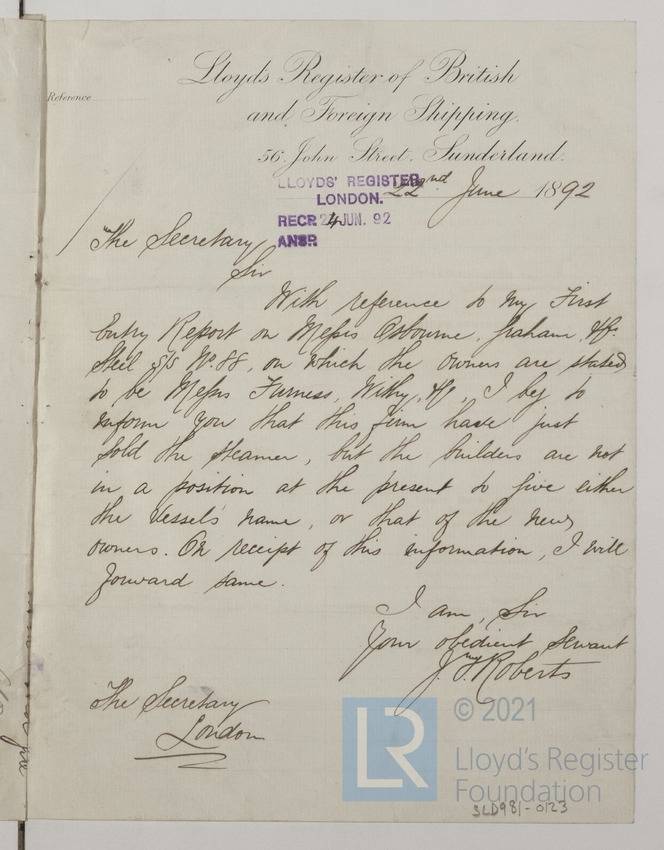 Lloyds Register of British
and Foreign Shipping.
Reference
56, John Street, Sunderland.
LLOYDS' REGISTER
LONDON.
22nd June 1892
RECD 24 JUN. 92
ANSD
The Secretary
Sir
With reference to my First
Entry Report on Messrs Osbourne, Graham, &Co
Steel S/S No 88, on which the owners are stated
to be Messrs Furness, Withy, &Co, I beg to
inform you that this firm have just
sold the steamer, but the builders are not
in a position at the present to give either
the Vessel's name, or that of the new
owners. On receipt of this information, I will
forward same.
I am, Sir
Your obedient Servant
Roberts
The Secretary
London
LR
© 2021
Lloyd's Register
Foundation
SLD981-0123